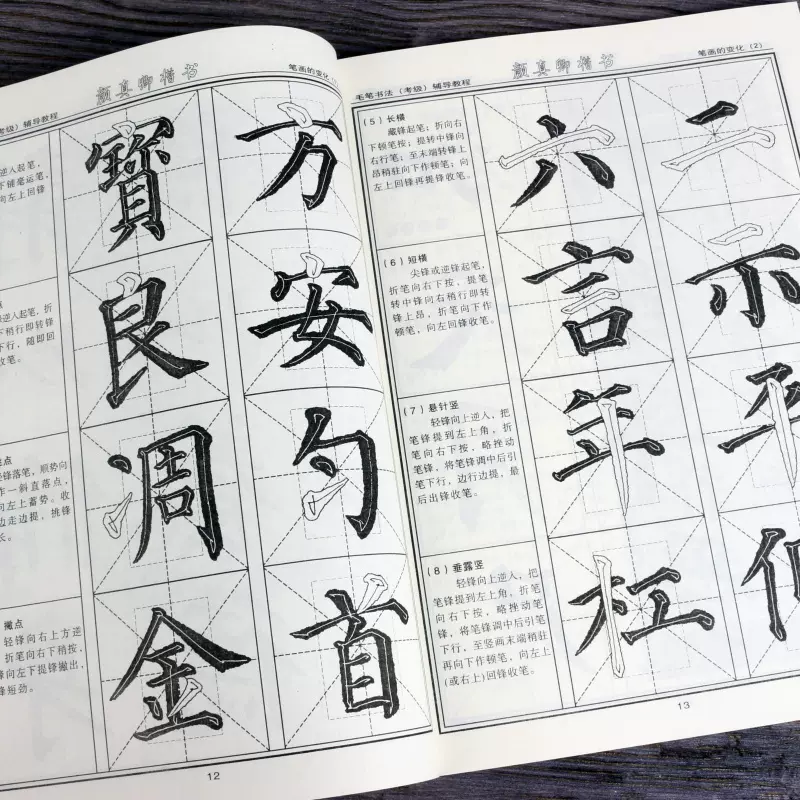 考级）辅导教程
颜真卿楷书
笔画的变化（
逆人起笔，
下铺毫运笔，
向左上回锋
寶 方
逆人起笔，折
下稍行即转锋
下行，随即回
收笔。
良 安
点
轻锋落笔，顺势向
作一斜直落点，
向左上蓄势。收
边走边提，挑锋
长。
凋 勺
撇点
轻锋向右上方逆
折笔向右下稍按，
向左下提锋撇出，
锋短劲。
金 首
12
毛笔书法（考级）辅导教程
颜真卿楷书
笔画的变化（2）
（5）长横
藏锋起笔；折向右
下顿笔按；提转中锋向
右行笔；至末端转锋上
昂稍驻向下作顿笔；向
左上回锋再提锋收笔。
六 三
（6）短横
尖锋或逆锋起笔，
折笔向右下按、提笔
转中锋向右稍行即转
锋上昂，折笔向下作
顿笔，向左回锋收笔。
言 示
（7）悬针竖
轻锋向上逆人，把
笔锋提到左上角，折
笔向右下按，略挫动
笔锋，将笔锋调中后引
笔下行，边行边提，最
后出锋收笔。
年 平
（8）垂露竖
轻锋向上逆人，把
笔锋提到左上角，折笔
向右下按，略挫动笔
锋，将笔锋调中后引笔
下行，至竖两末端稍驻
再向下作顿笔，向左上
(或右上)回锋收笔。
13